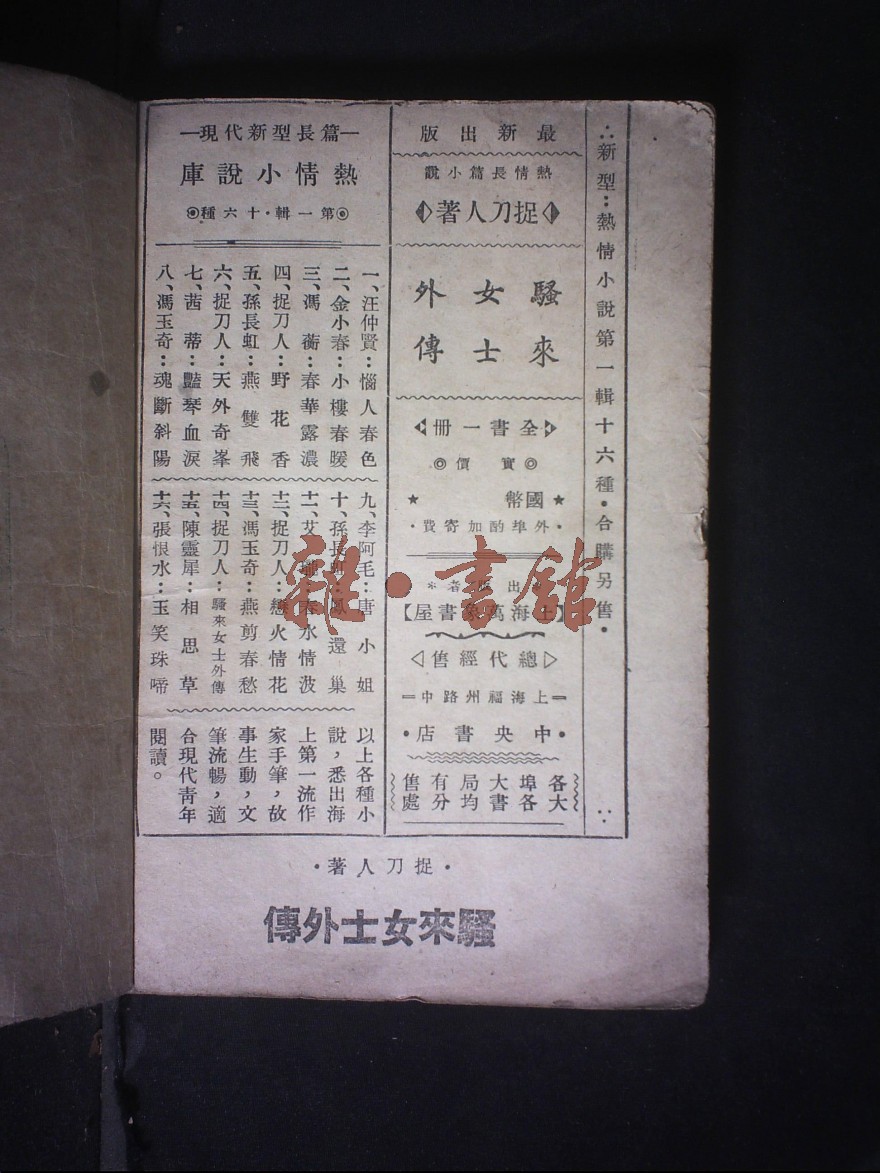 ∴新型：熱情小說第一輯十六種・合購另售・∵
最新出版
熱情長篇小說
捉刀人著
騷女外
來士傳
全書一冊
◎實價◎
★國幣★
・外埠酌加寄費・
＊出版者＊
【上海萬象書屋】
▷總代經售◁
＝上海福州路中＝
・中央書店・
各埠大局有售
大各書均分處
—現代新型長篇—
熱情小說庫
◎第一輯・十六種◎
一、汪仲賢：惱人春色
二、金小春：小樓春暖
三、馮蘅：春華露濃
四、捉刀人：野花香
五、孫長虹：燕雙飛
六、捉刀人：天外奇峯
七、茜蒂：豔琴血淚
八、馮玉奇：魂斷斜陽
九、李阿毛：唐小姐
十、孫長虹：鳳還巢
十一、艾：春水情波
十二、捉刀人：戀火情花
十三、馮玉奇：燕剪春愁
十四、捉刀人：騷來女士外傳
十五、陳靈犀：相思草
十六、張恨水：玉笑珠啼
以上各種小
說，悉出海
上第一流作
家手筆，故
事生動，文
筆流暢，適
合現代青年
閱讀。
・捉刀人著・
騷來女士外傳
雜・書館